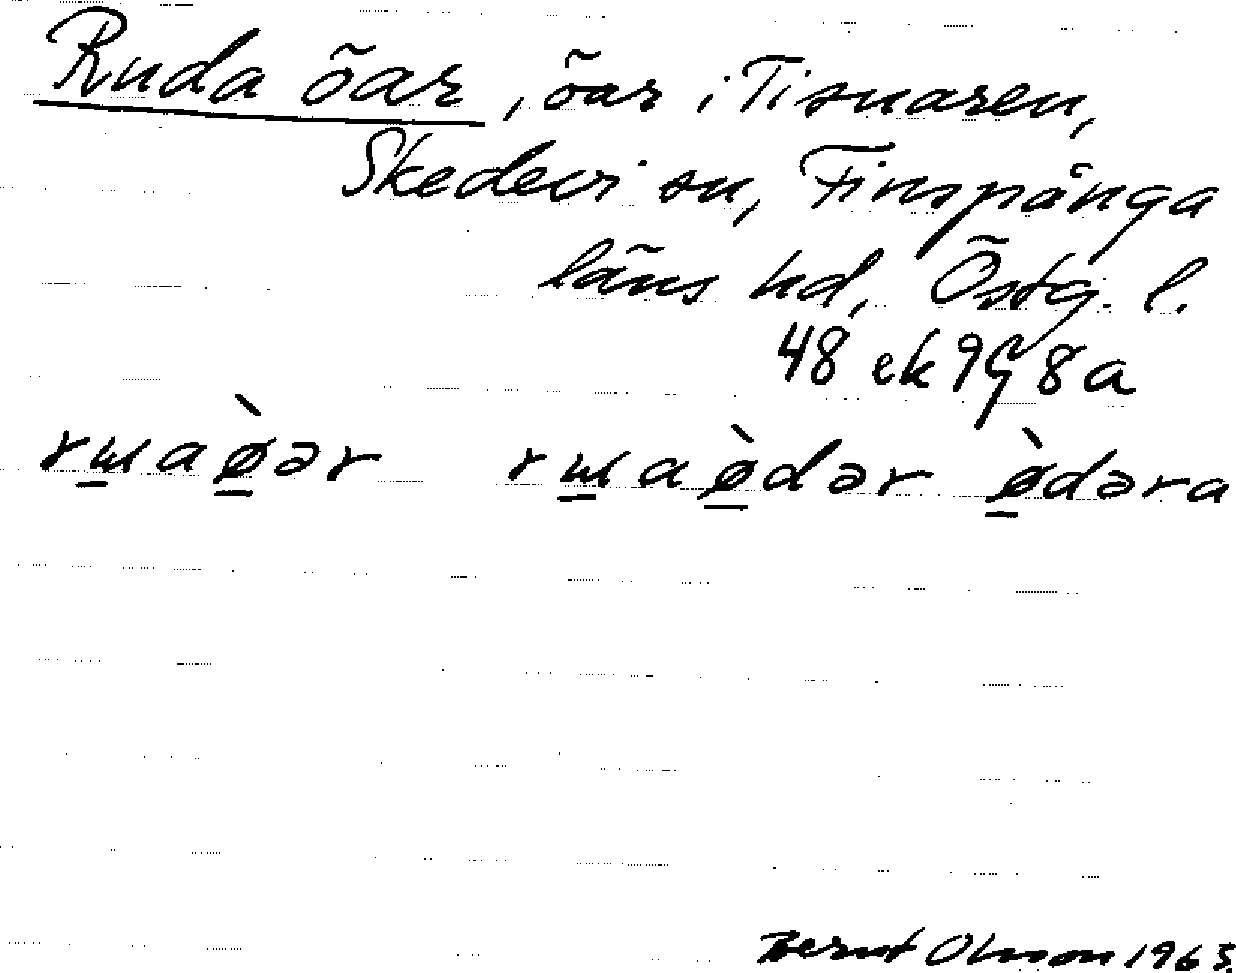 Ruda öar, öar i Tisnaren,
Skedevi sn, Finspånga
läns hd, Östg. l.
48 ek 9G 8a
rɯaø̀ər rɯaø̀dər ø̀dəra
Bernt Olsson 1965.